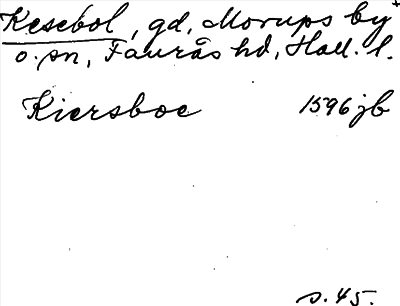 Kesebol, gd, Morups by+
o. sn, Faurås hd, Hall. l.
Kiersboe 1596 jb
s. 45.